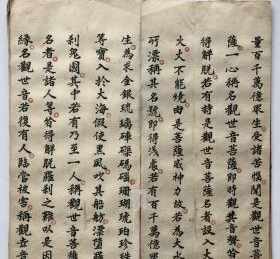 量百千萬億眾生受諸苦惱聞是觀世音菩
薩一心稱名觀世音菩薩即時觀其音聲皆
得解脫若有持是觀世音菩薩名者設入大
火火不能燒由是菩薩威神力故若為大水
所漂稱其名號即得淺處若有百千萬億眾
生為求金銀琉璃硨磲碼瑙珊瑚琥珀珍珠
等寶入於大海假使黑風吹其船舫漂墮羅
剎鬼國其中若有乃至一人稱觀世音菩薩
名者是諸人等皆得解脫羅剎之難以是因
緣名觀世音若復有人臨當被害稱觀世音